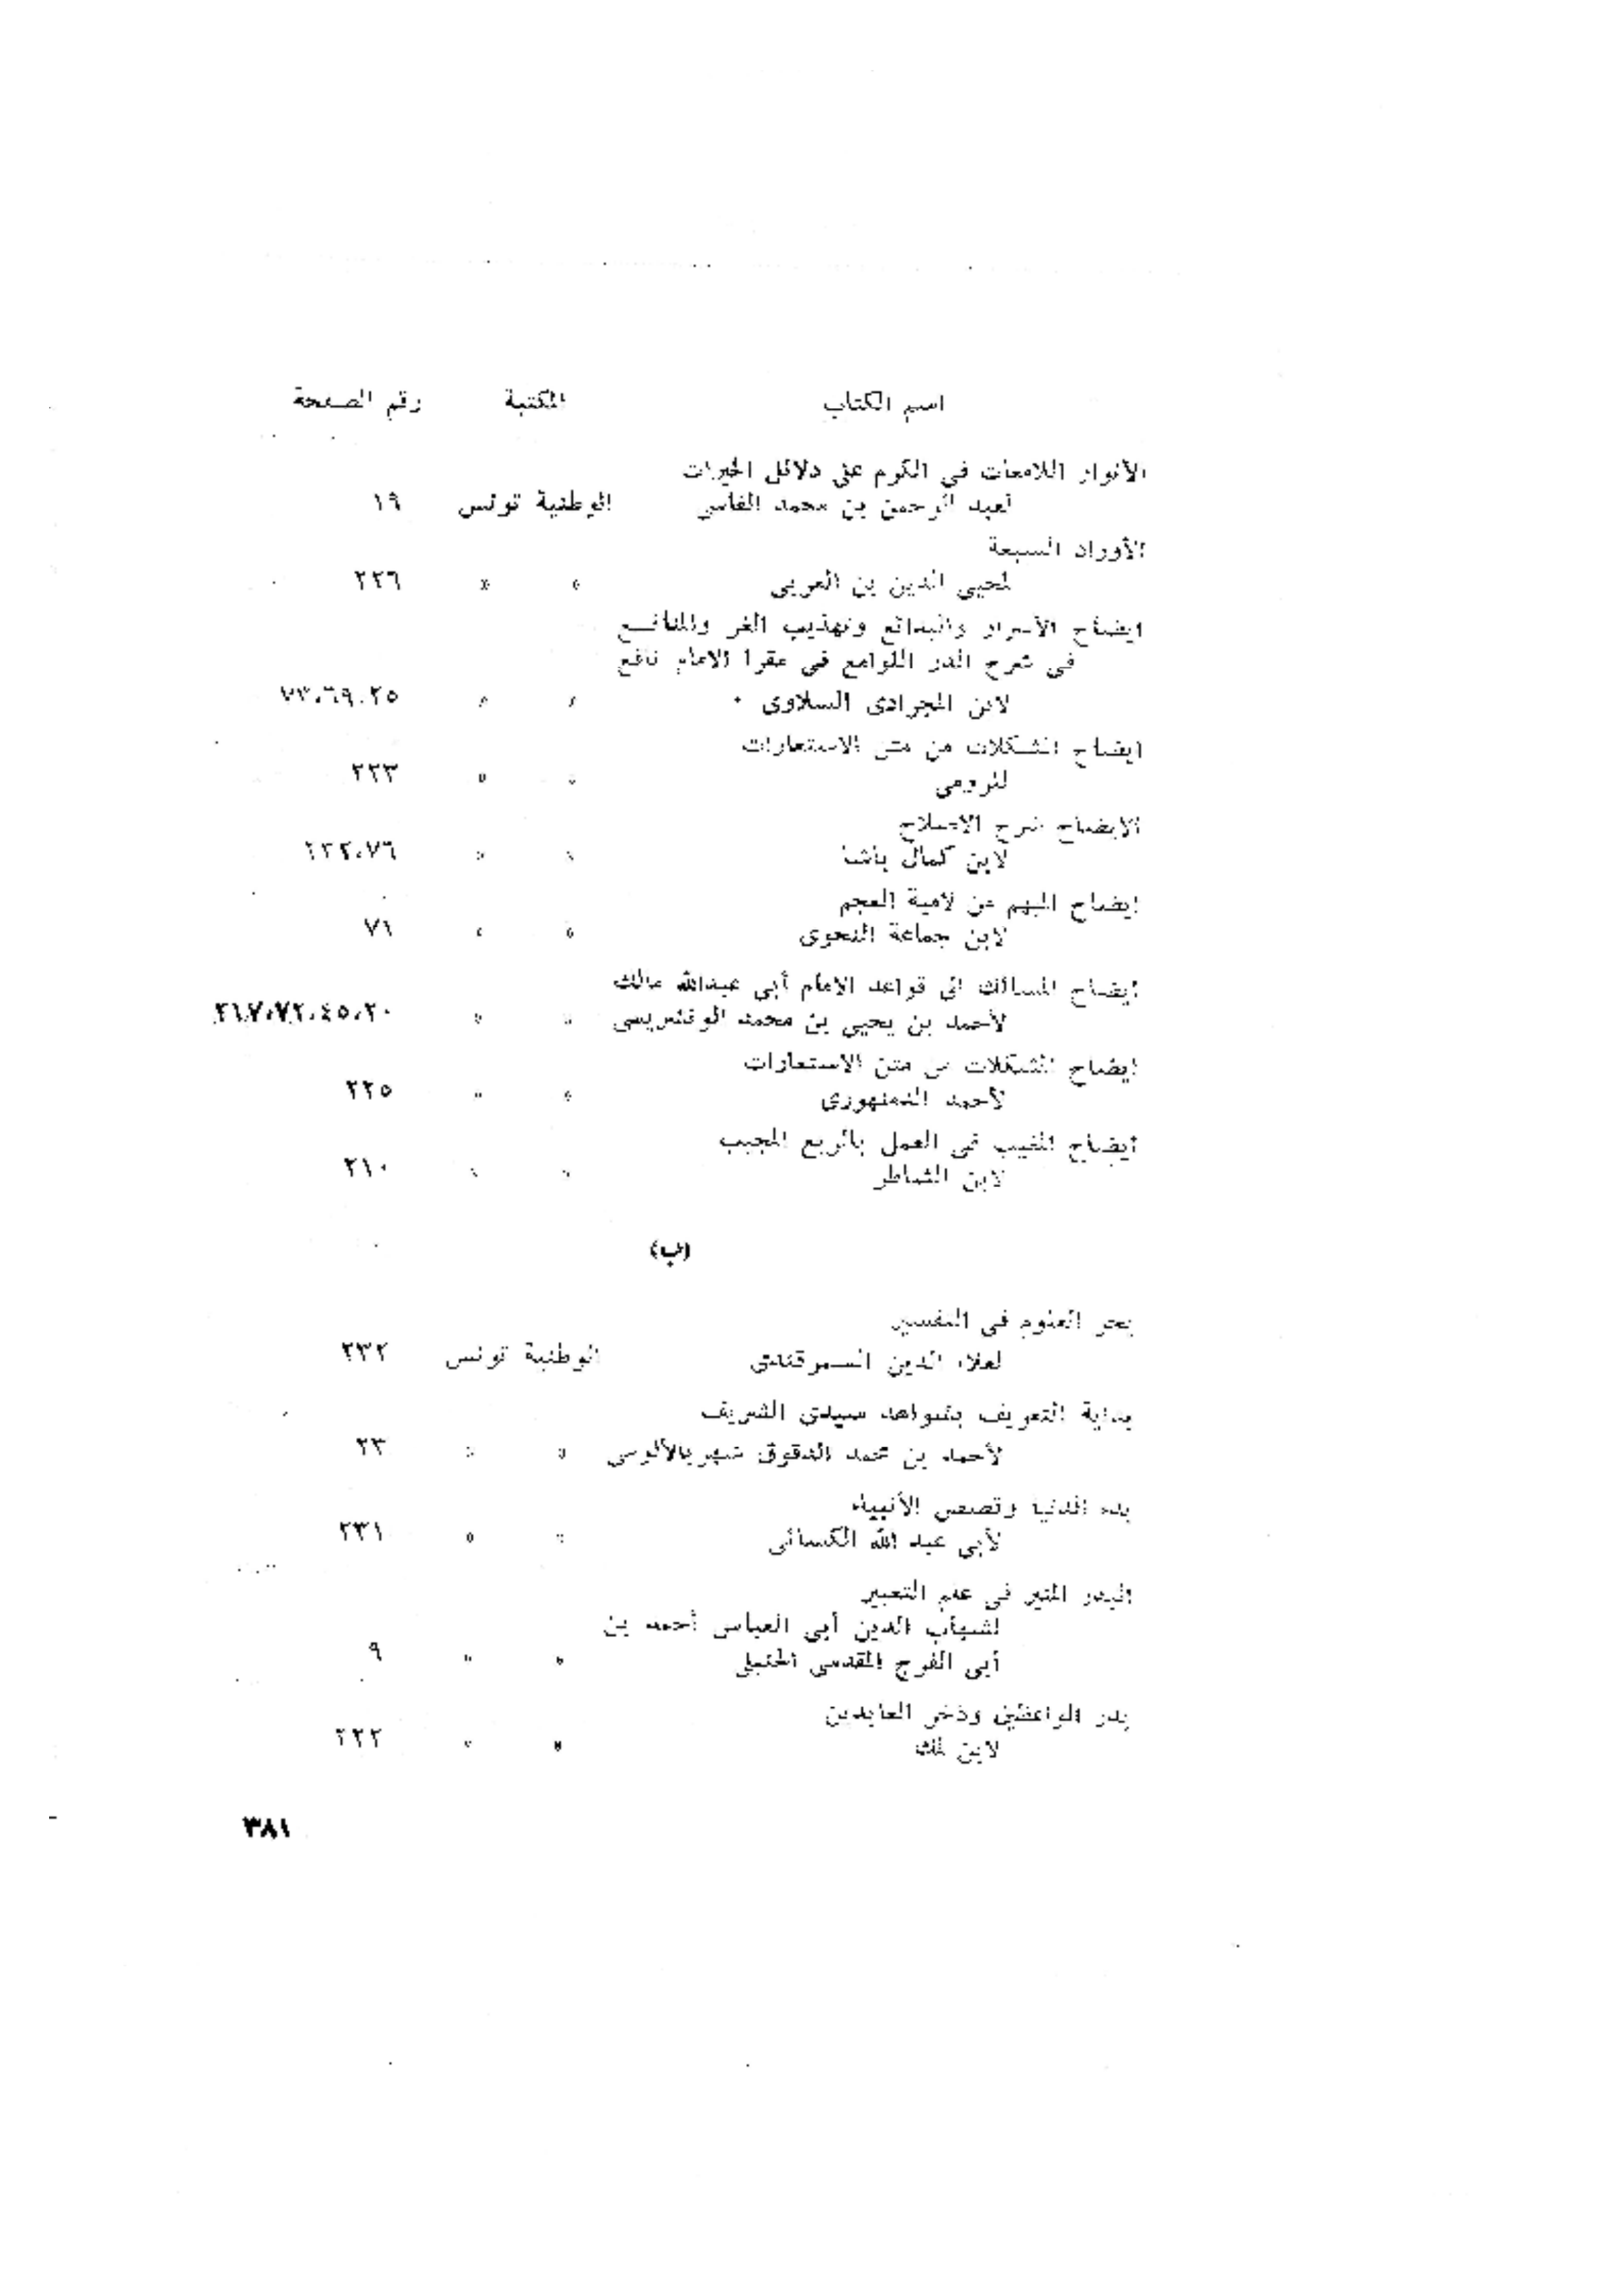 اسم الكتاب المكتبة رقم الصفحة
الأنوار اللامعات في الكوم على دلائل الخيرات
لعبد الرحمن بن محمد الفاسي الوطنية تونس ١٩
الأوراد السبعة
لمحيى الدين بن العربى » » ٢٢٦
ايضاح الأسرار والبدائع وتهذيب الغر والمنافع
فى شرح الدر اللوامع فى مقرا الامام نافع
لابن المجرادى السلاوى » » ٧٣،٦٩،٢٥
ايضاح المشكلات من متن الاستعارات
للرومى » » ٢٢٣
الايضاح شرح الاصلاح
لابن كمال باشا » » ٢٢٢،٧٦
إيضاح المبهم من لامية العجم
لابن جماعة النحوى » » ٧٦
إيضاح المسالك الى قواعد الامام أبى عبدالله مالك
لأحمد بن يحيى بن محمد الونشريسى » » ٢١٧،٧٢،٤٥،٢٠
إيضاح المشكلات من متن الاستعارات
لأحمد الدمنهورى » » ٢٢٥
ايضاح المغيب فى العمل بالربع المجيب
لابن الشاطر » » ٢١٠
(ب)
بحر العلوم فى التفسير
لعلاء الدين السمرقندى الوطنية تونس ٢٣٢
بداية التعريف بشواهد سيدى الشريف
لأحمد بن محمد الدقوق شهر بالألوسى » » ٢٣
بدء الدنيا وقصص الأنبياء
لأبى عبد الله الكسائى » » ٢٣١
البدر المنير فى علم التعبير
لشهاب الدين أبى العباس أحمد بن
أبى الفرج المقدسى الحنبلى » » ٩
بدر الواعظين وذخر العابدين
لابن ملك » » ٢٢٢
٣٨١